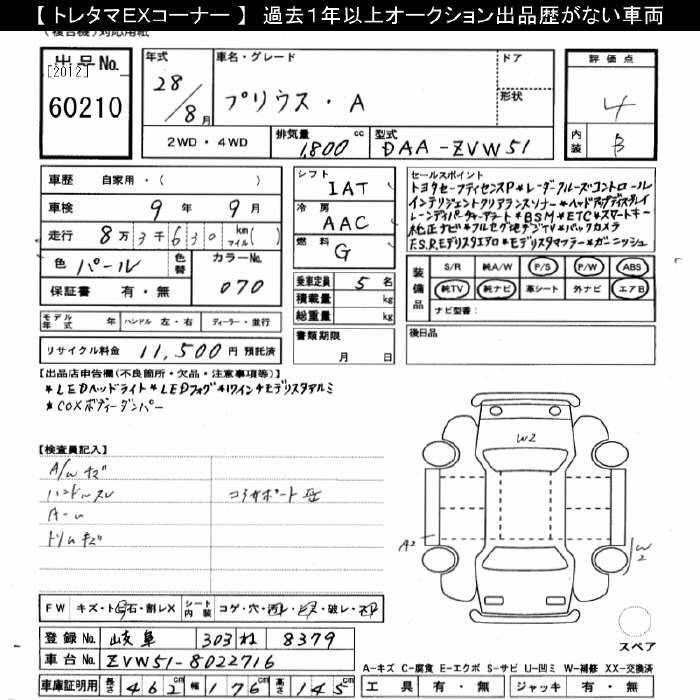 【 トレタマEXコーナー 】 過去１年以上オークション出品歴がない車両
(複合機)対応用紙
出品No. [2012] 60210
年式 28/8月
車名・グレード プリウス・A
ドア
形状
2WD・4WD
排気量 1,800cc
型式 DAA-ZVW51
評価点 4
内装 B
車歴 自家用・( )
車検 9年 9月
走行 8万3千630 km マイル( )
色 パール 色替 カラーNo. 070
保証書 有・無
シフト IAT
冷房 AAC
燃料 G
乗車定員 5名
積載量 kg
総重量 kg
書類期限 月 日
セールスポイント
トヨタセーフティセンスP*レーダークルーズコントロール
インテリジェントクリアランスソナー*ヘッドアップディスプレイ
レーンディパーチャーアラート*BSM*ETC*スマートキー
純正ナビ*フルセグ地デジTV*バックカメラ
F.S.Rモデリスタエアロ*モデリスタマフラー*ガーニッシュ
装備品 S/R 純A/W P/S P/W ABS
純TV 純ナビ 革シート 外ナビ エアB
ナビ型番:
後日品
モデル年式 年 ハンドル 左・右 ディーラー・並行
リサイクル料金 11,500円 預託済
【出品店申告欄(不良箇所・欠品・注意事項等)】
*LEDヘッドライト*LEDフォグ*17インチモデリスタアルミ
*COXボディーダンパー
【検査員記入】
A/W キズ
ハンドルスレ
コアサポート歪
トリムキズ
W2
A2
W2
FW キズ・ト石・割レX シート内装 コゲ・穴・・・破レ・
スペア
登録No. 岐阜 303 ね 8379
車台No. ZVW51-8022716
車庫証明用 長さ 462cm 幅 176cm 高さ 145cm
A-キズ C-腐食 E-エクボ S-サビ U-凹ミ W-補修 XX-交換済
工具 有・無 ジャッキ 有・無